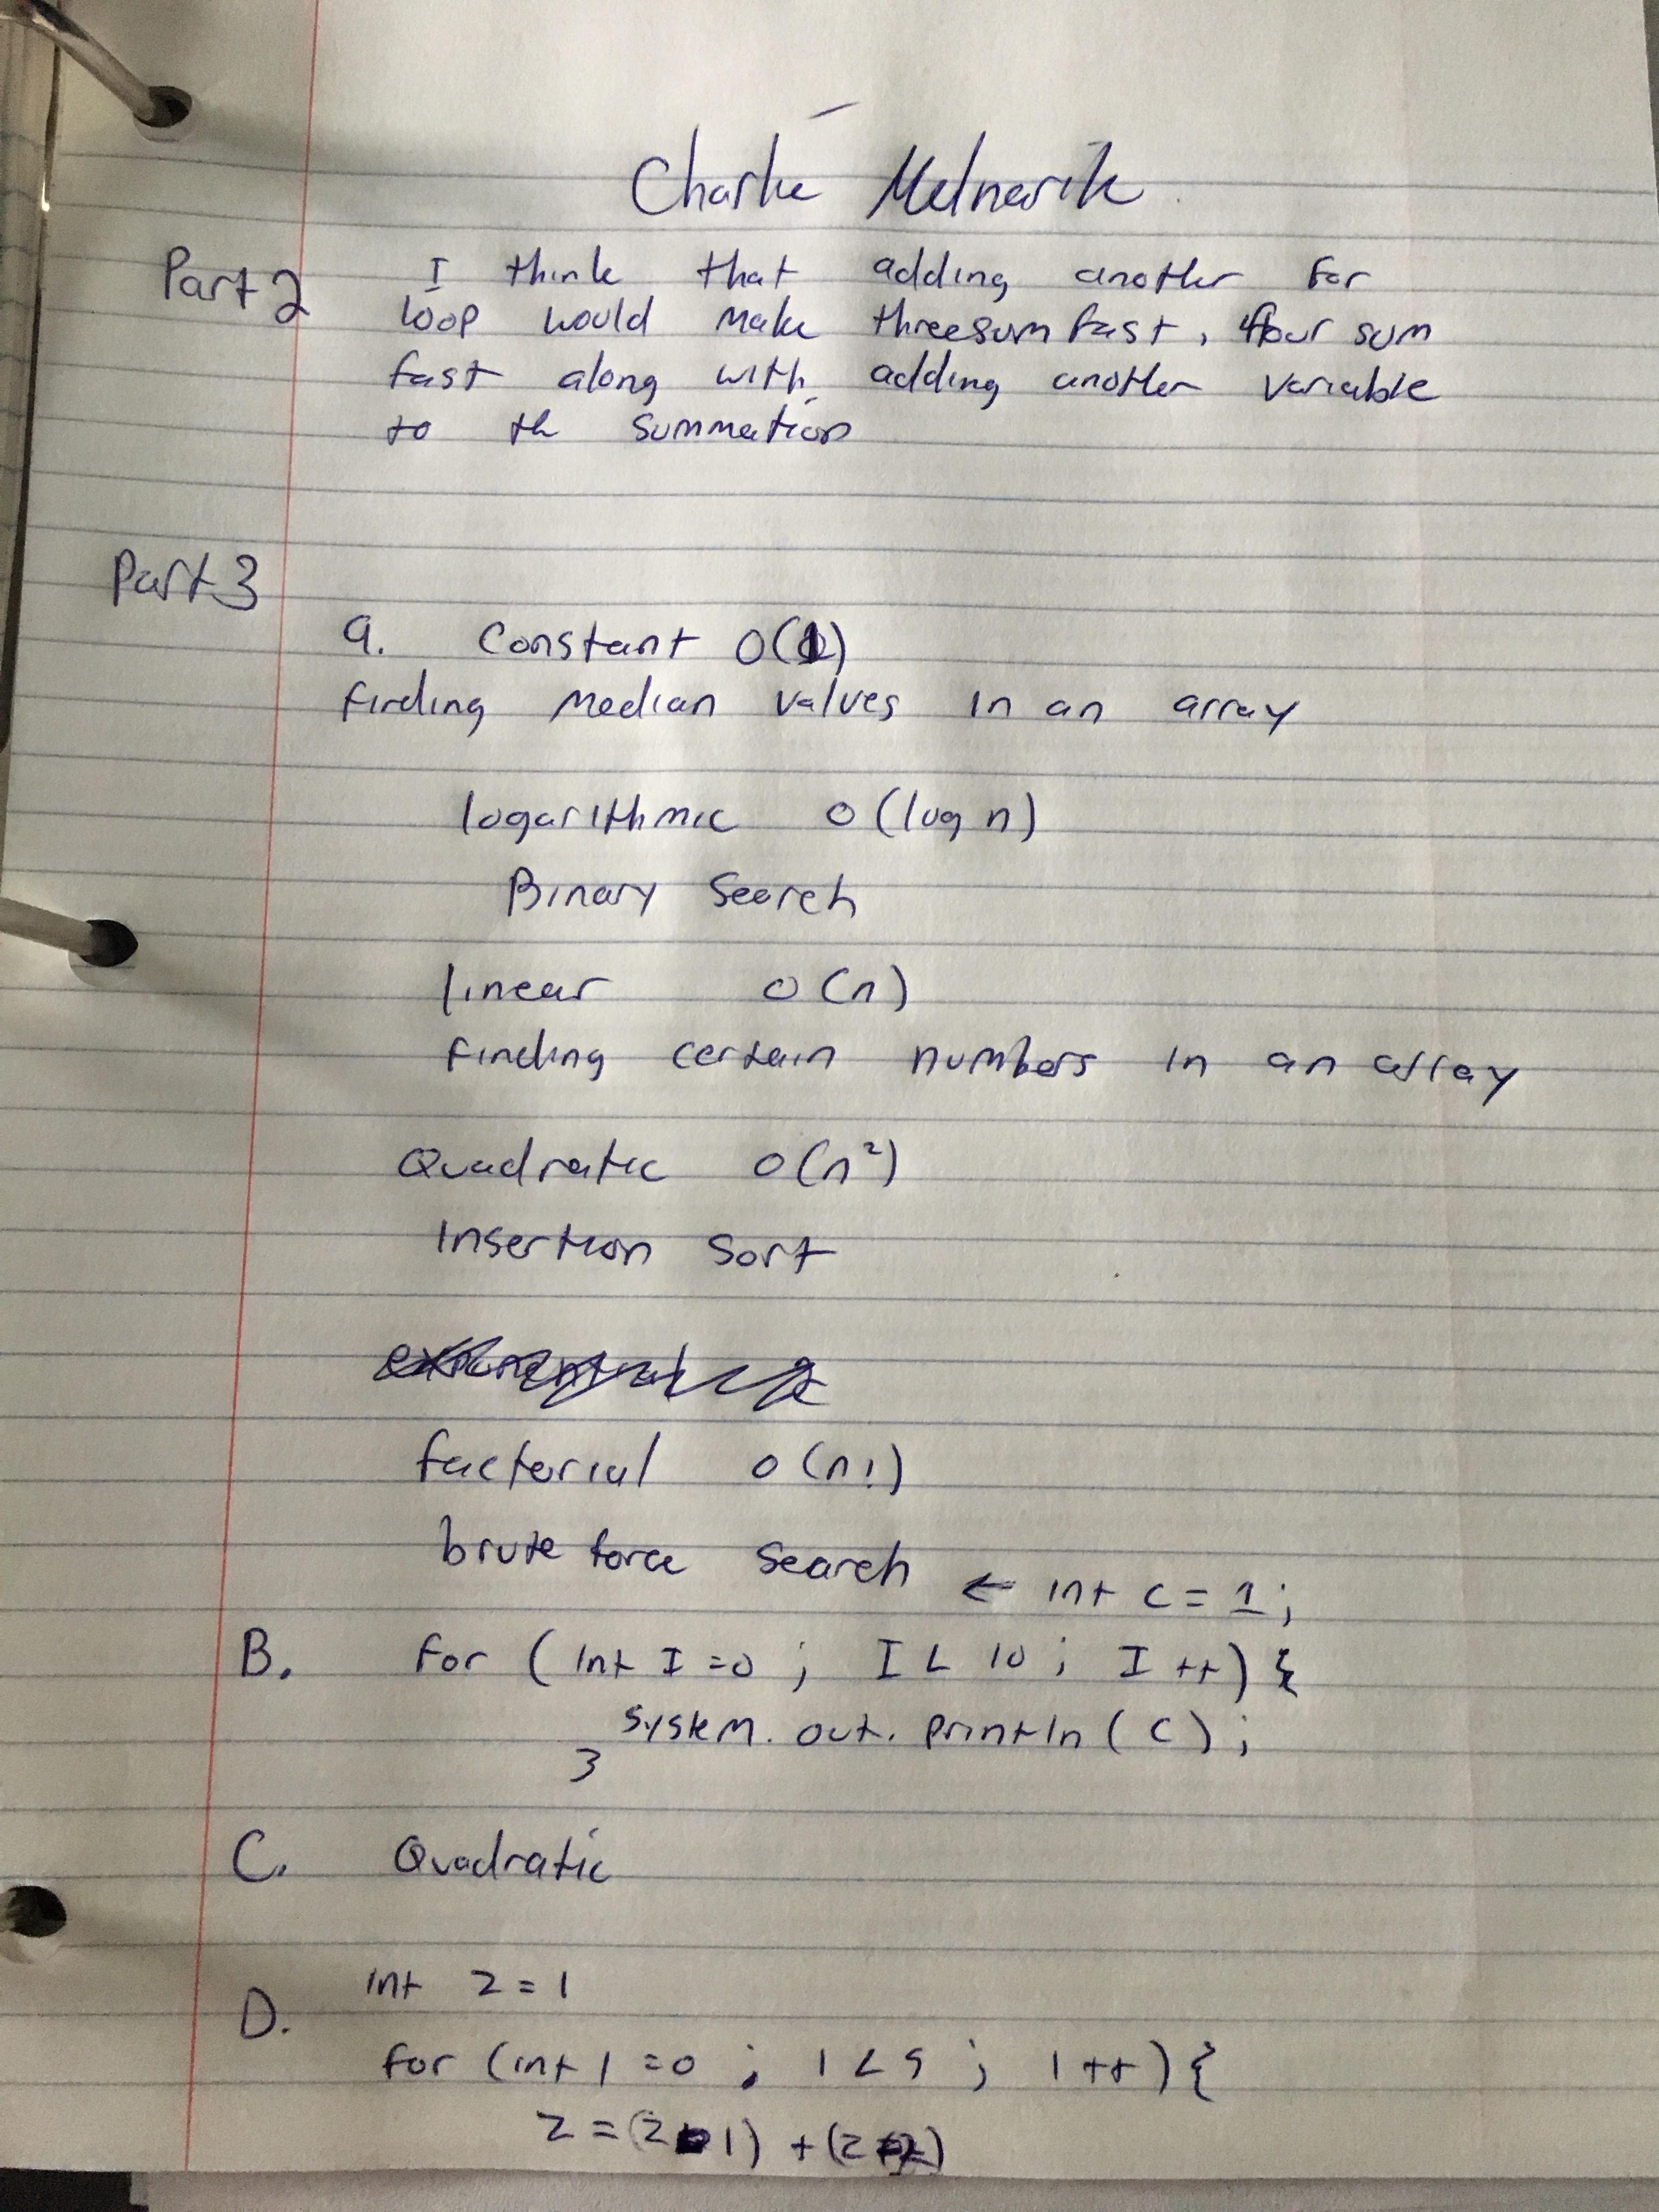 Charlie Melnarik
Part 2 I think that adding another for
loop would make threesum fast, four sum
fast along with adding another variable
to th summation
Part 3
a. Constant O(1)
finding median values in an array
logarithmic O(log n)
Binary Search
linear O(n)
finding certain numbers in an array
Quadratic O(n²)
Insertion Sort
factorial O(n!)
brute force search ← int c = 1;
B. for (int I = 0; I < 10; I++) {
System.out.println(c);
}
C. Quadratic
D. int z = 1
for (int I = 0; I < 5; I++) {
z = (z-1) + (z-2)